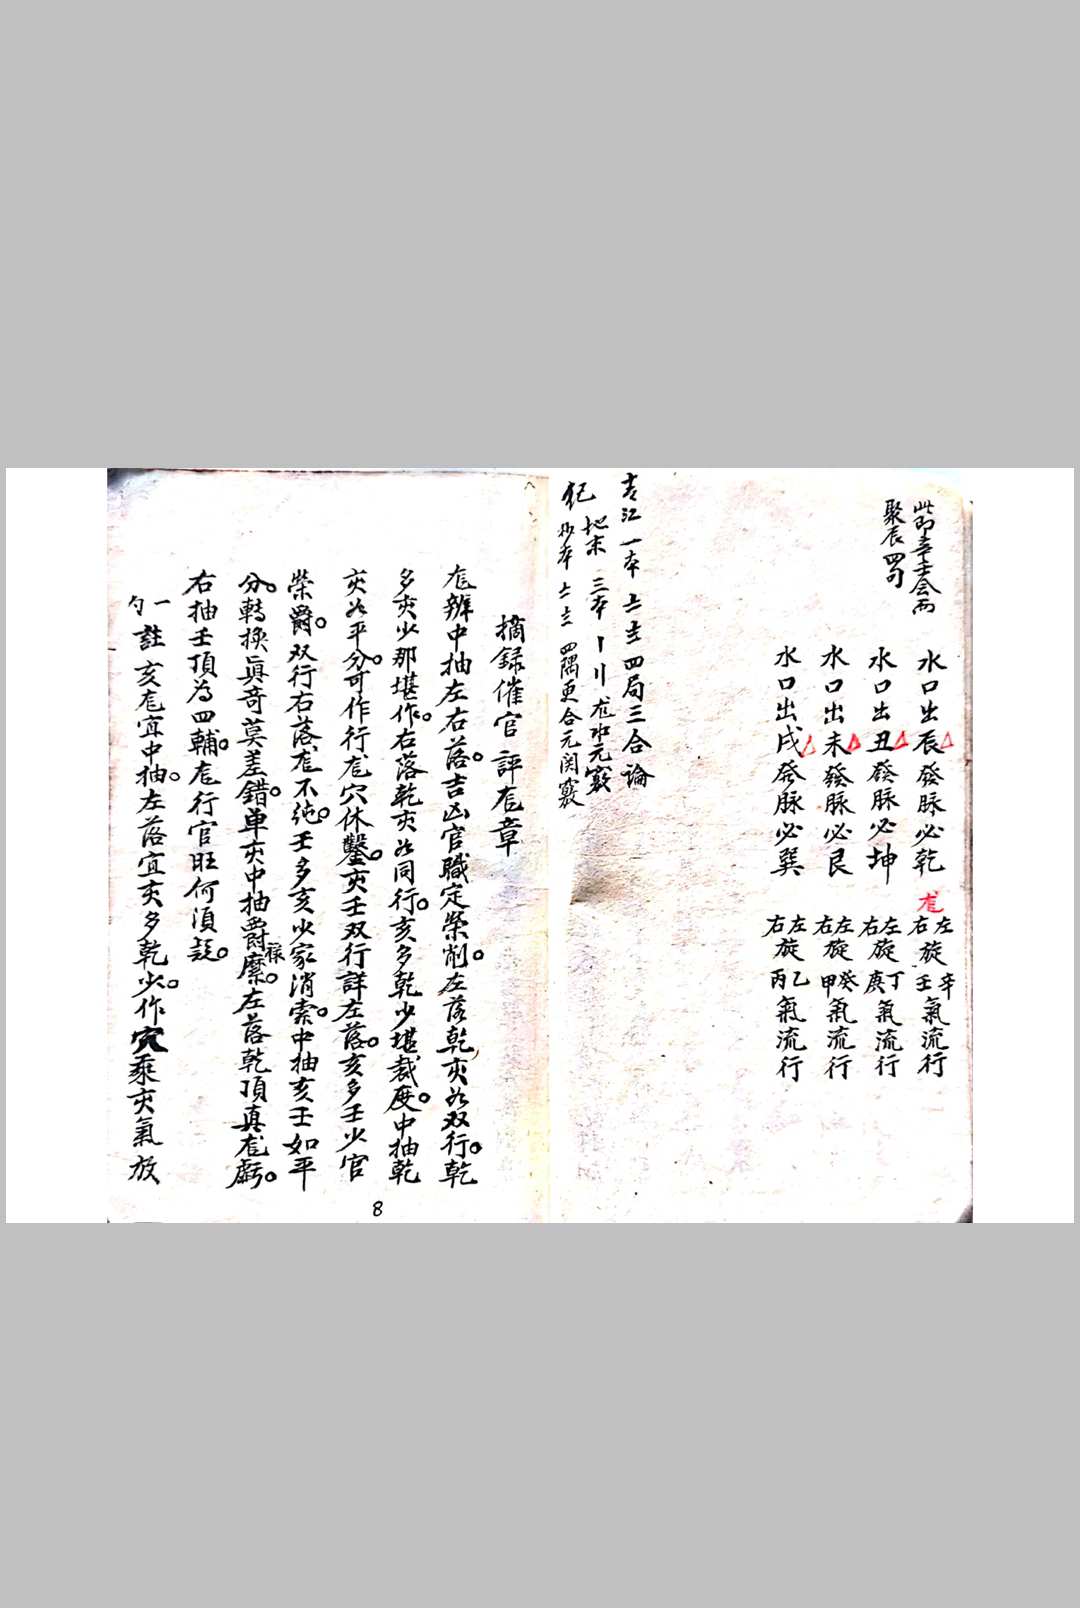 水口出辰發脉必乾 左右旋辛壬氣流行
龙
水口出丑發脉必坤 左右旋丁庚氣流行
水口出未發脉必艮 左右旋癸甲氣流行
水口出戌發脉必巽 左右旋乙丙氣流行
聚辰
四局三合論
龙水元竅
四隅更合元関竅
摘録催官評龙章
龙辨中抽左右落吉凶官職定榮削左落乾亥必双行乾
多亥少那堪作右落乾亥必同行亥多乾少堪裁度中抽乾
亥必平分可作行龙穴休鑿亥壬双行詳左落亥多壬少官
榮爵双行右落龙不純壬多亥少家消索中抽亥壬如平
分轉換真奇莫差錯单亥中抽爵禄縻左落乾頂真龙虧
右抽壬頂為四輔龙行官旺何須疑
一勺註亥龙宜中抽左落宜亥多乾少作穴乘亥氣放
8